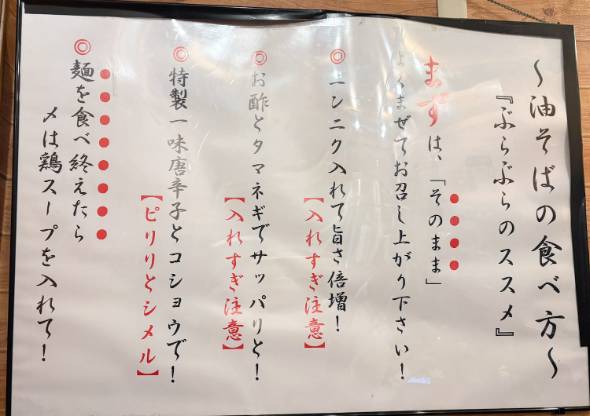 ～油そばの食べ方～
『ぶらぶらのススメ』
まずは、「そのまま」
よくまぜてお召し上がり下さい！
◎ニンニク入れて旨さ倍増！
【入れすぎ注意】
◎お酢とタマネギでサッパリと！
【入れすぎ注意】
◎特製一味唐辛子とコショウで！
【ピリリとシメル】
◎麺を食べ終えたら
〆は鶏スープを入れて！